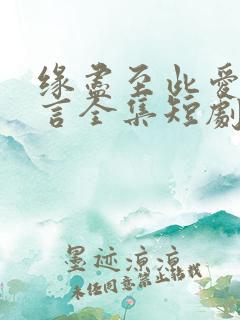 缘盡至此爱
言全集短劇
墨迹凉凉
未经同意禁止转载